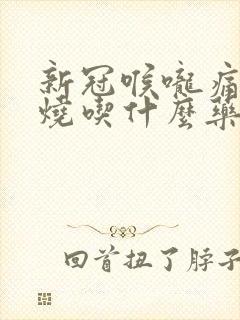 新冠喉嚨痛
燒喫什麼藥
回首扭了脖子